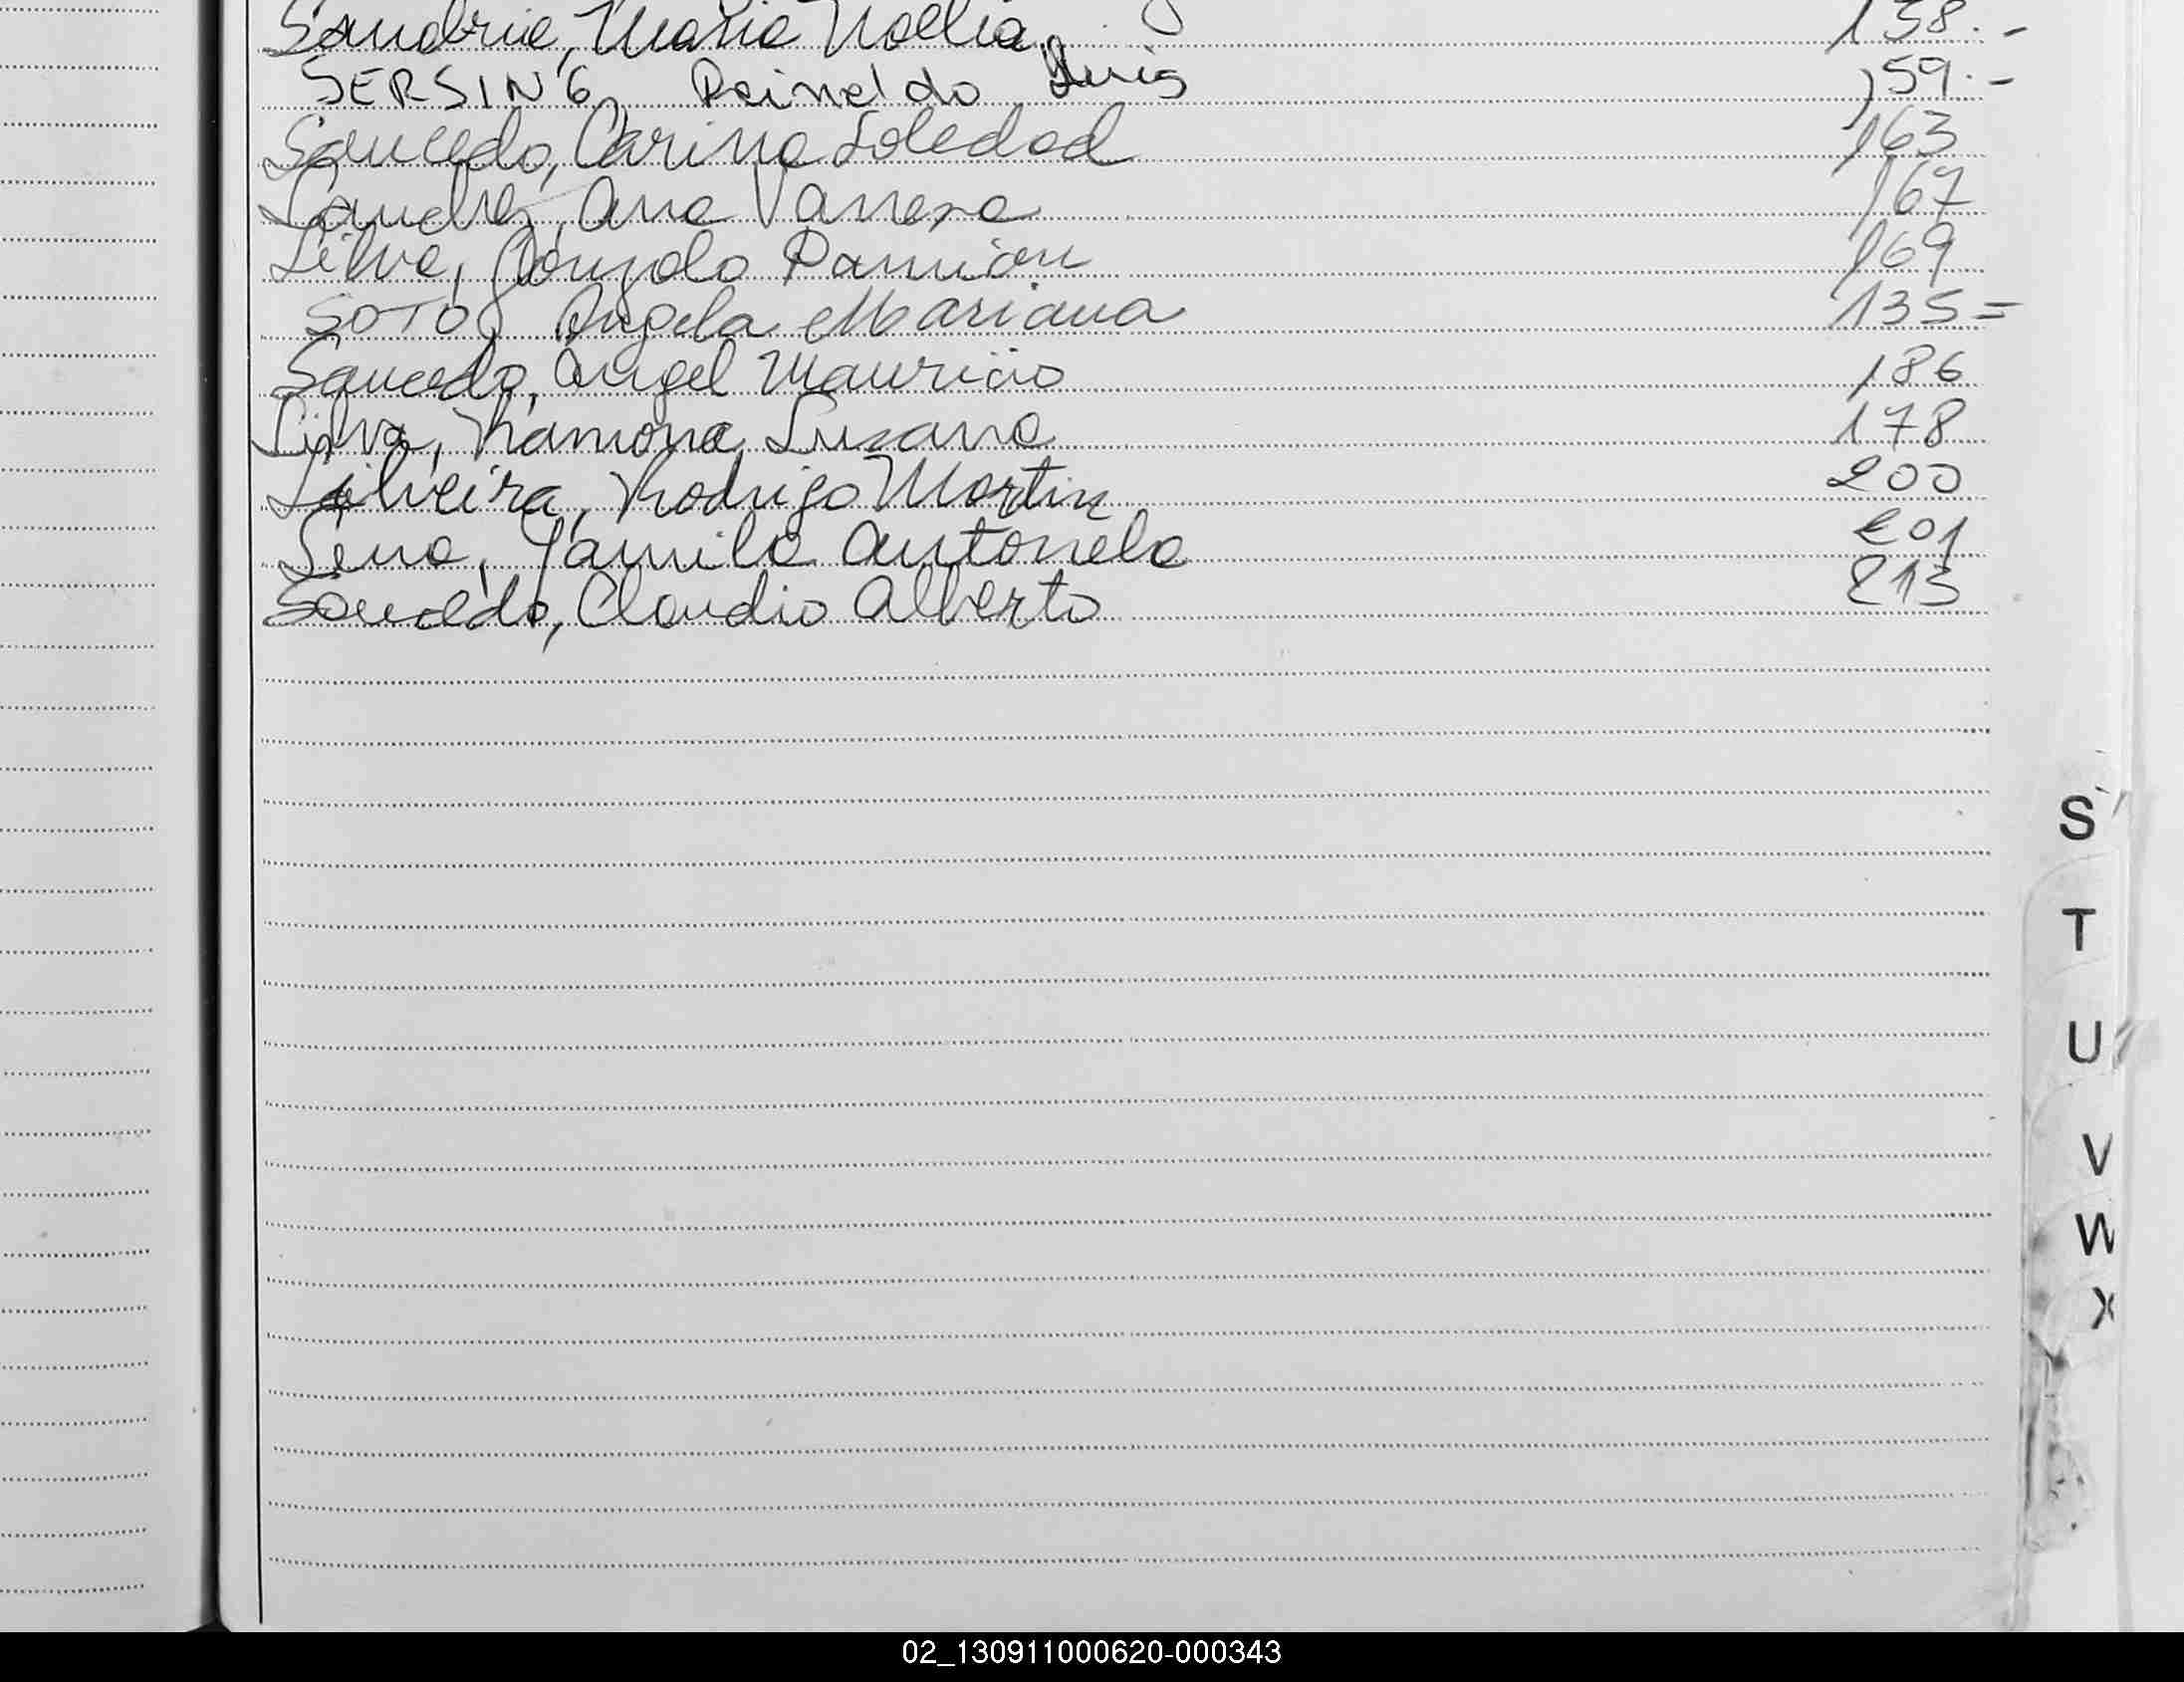 Sandrie, Maria Noelia 158.-
SERSING Reinaldo Luis 159.-
Saucedo, Carina Soledad 163
Sanchez, Ana Vanesa 167
Silva, Gonzalo Damián 169
SOTO, Angela Mariana 135=
Saucedo, Angel Mauricio 186
Silva, Ramona Susana 178
Silveira, Rodrigo Martin 200
Sena, Yamila Antonela 201
Saucedo, Claudio Alberto 213
S
T
U
V
W
X
02_130911000620-000343